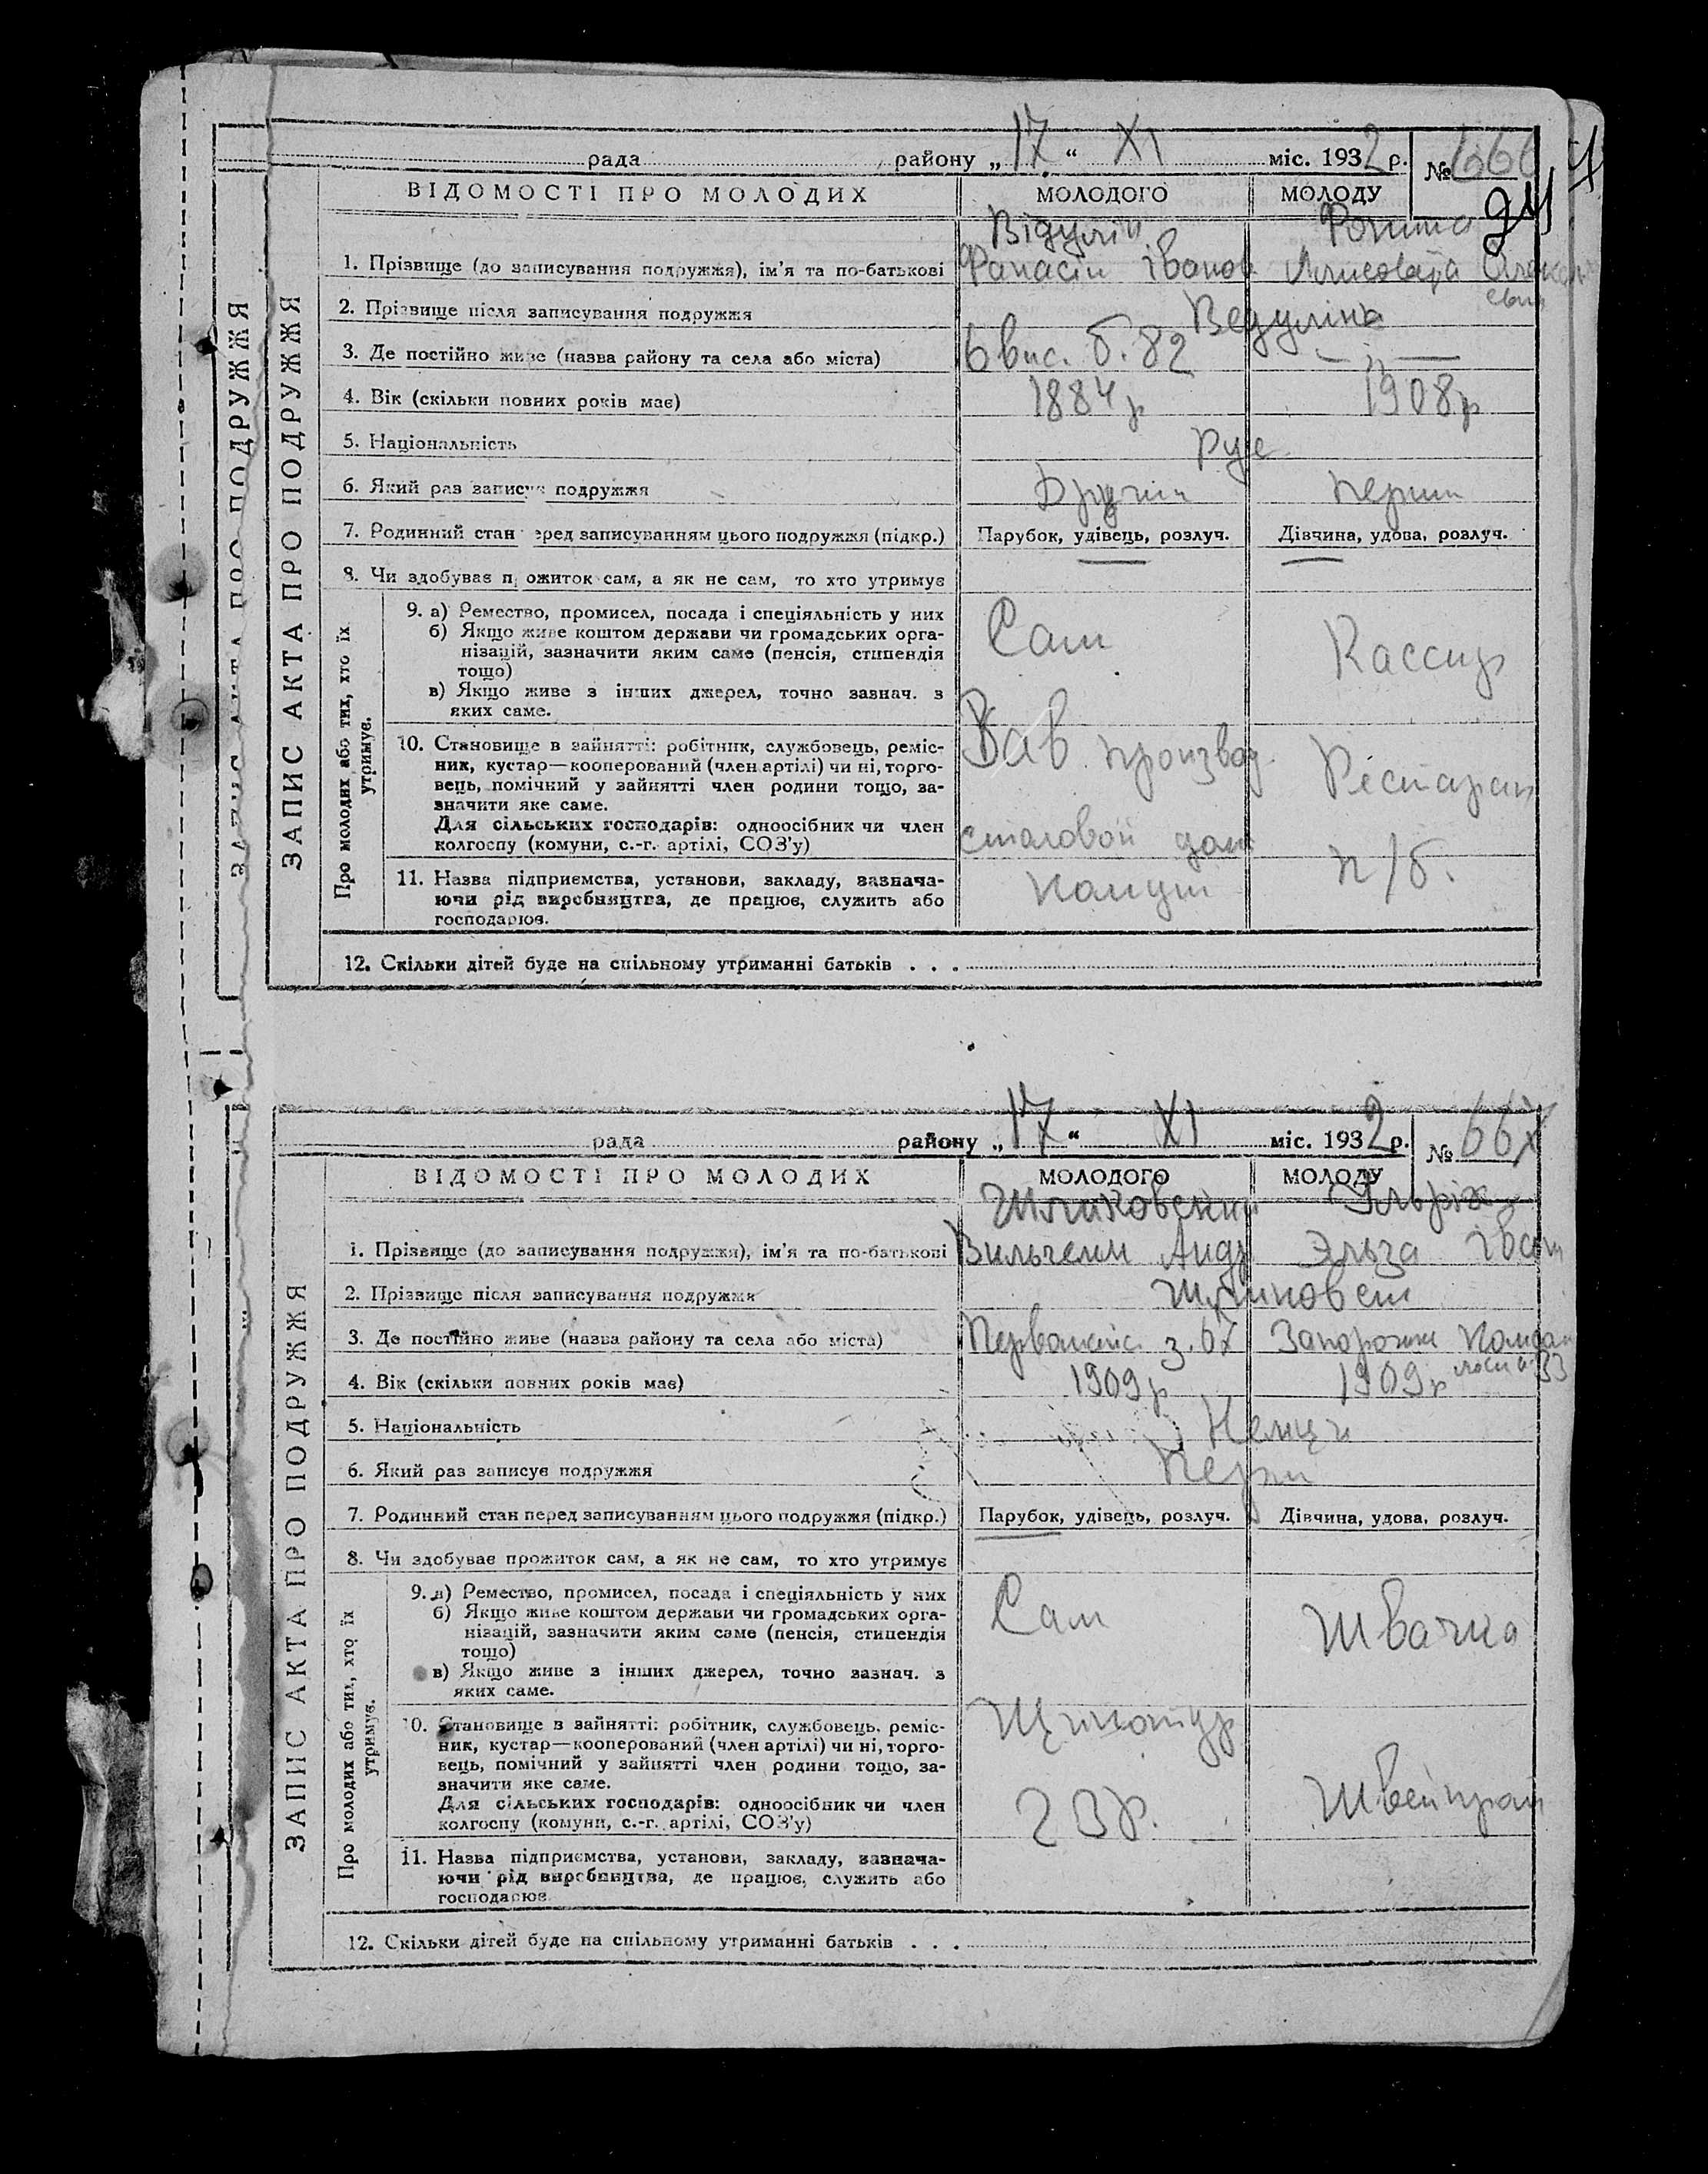 рада району „17“ XI міс. 1932 р. № 666
ВІДОМОСТІ ПРО МОЛОДИХ МОЛОДОГО МОЛОДУ
24
Відулін
1. Прізвище (до записування подружжя), ім'я та по-батькові Фанасій Іванов
2. Прізвище після записування подружжя Ведуліна
3. Де постійно живе (назва району та села або міста) 6 вис. б. 82 — „ —
4. Вік (скільки повних років має) 1884 р 1908 р
5. Національність Рус
6. Який раз записує подружжя Другий Перши
7. Родинний стан перед записуванням цього подружжя (підкр.) Парубок, удівець, розлуч. Дівчина, удова, розлуч.
8. Чи здобуває прожиток сам, а як не сам, то хто утримує
9. а) Ремество, промисел, посада і спеціяльність у них
б) Якщо живе коштом держави чи громадських орга-
нізацій, зазначити яким саме (пенсія, стипендія
тощо)
в) Якщо живе з інших джерел, точно зазнач. з
яких саме.
Сам Кассир
10. Становище в зайнятті: робітник, службовець, реміс-
ник, кустар—кооперований (член артілі) чи ні, торго-
вець, помічний у зайнятті член родини тощо, за-
значити яке саме.
Для сільських господарів: одноосібник чи член
колгоспу (комуни, с.-г. артілі, СОЗ'у)
Зав производ. Ресторан
столовой
11. Назва підприємства, установи, закладу, зазнача-
ючи рід виробництва, де працює, служить або
господарює.
п/б.
12. Скільки дітей буде на спільному утриманні батьків . . .
ЗАПИС АКТА ПРО ПОДРУЖЖЯ
ЗАПИС АКТА ПРО ПОДРУЖЖЯ
Про молодих або тих, хто їх
утримує.
рада району „17“ XI міс. 1932 р. № 667
ВІДОМОСТІ ПРО МОЛОДИХ МОЛОДОГО МОЛОДУ
1. Прізвище (до записування подружжя), ім'я та по-батькові Вильгельм Андр Эльза Іван
2. Прізвище після записування подружжя
3. Де постійно живе (назва району та села або міста) Запорожжя
4. Вік (скільки повних років має) 1909 р 1909 р
5. Національність Немци
6. Який раз записує подружжя Перши
7. Родинний стан перед записуванням цього подружжя (підкр.) Парубок, удівець, розлуч. Дівчина, удова, розлуч.
8. Чи здобуває прожиток сам, а як не сам, то хто утримує
9. а) Ремество, промисел, посада і спеціяльність у них
б) Якщо живе коштом держави чи громадських орга-
нізацій, зазначити яким саме (пенсія, стипендія
тощо)
в) Якщо живе з інших джерел, точно зазнач. з
яких саме.
Сам Швачка
10. Становище в зайнятті: робітник, службовець, реміс-
ник, кустар—кооперований (член артілі) чи ні, торго-
вець, помічний у зайнятті член родини тощо, за-
значити яке саме.
Для сільських господарів: одноосібник чи член
колгоспу (комуни, с.-г. артілі, СОЗ'у)
Швейпром
11. Назва підприємства, установи, закладу, зазнача-
ючи рід виробництва, де працює, служить або
господарює
12. Скільки дітей буде на спільному утриманні батьків . . .
ЗАПИС АКТА ПРО ПОДРУЖЖЯ
Про молодих або тих, хто їх
утримує.